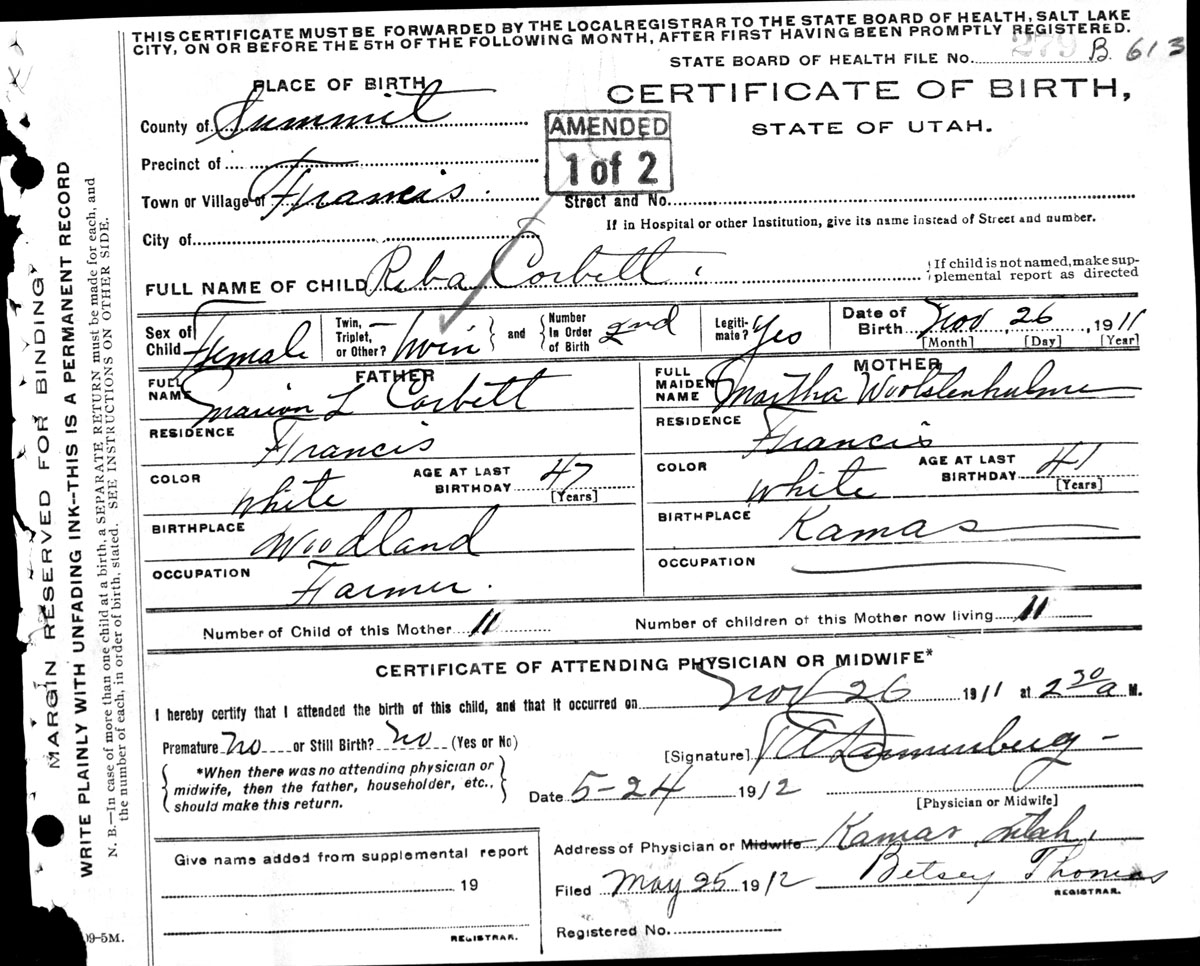 THIS CERTIFICATE MUST BE FORWARDED BY THE LOCAL REGISTRAR TO THE STATE BOARD OF HEALTH, SALT LAKE
CITY, ON OR BEFORE THE 5TH OF THE FOLLOWING MONTH, AFTER FIRST HAVING BEEN PROMPTLY REGISTERED.
STATE BOARD OF HEALTH FILE NO. 279 B. 613
PLACE OF BIRTH
CERTIFICATE OF BIRTH,
STATE OF UTAH.
County of Summit
AMENDED
1 of 2
Precinct of
Town or Village of Francis
Street and No.
If in Hospital or other Institution, give its name instead of Street and number.
City of
FULL NAME OF CHILD Reba Corbett
If child is not named, make sup-
plemental report as directed
Sex of Child Female
Twin, Triplet, or Other? Twin
and
Number In Order of Birth 2nd
Legiti-mate? Yes
Date of Birth Nov 26, 1911
[Month] [Day] [Year]
FATHER
FULL NAME Marion L Corbett
RESIDENCE Francis
COLOR White
AGE AT LAST BIRTHDAY 47
[Years]
BIRTHPLACE Woodland
OCCUPATION Farmer.
MOTHER
FULL MAIDEN NAME Martha Woolstenhulme
RESIDENCE Francis
COLOR White
AGE AT LAST BIRTHDAY 41
[Years]
BIRTHPLACE Kamas
OCCUPATION
Number of Child of this Mother 11
Number of children of this Mother now living 11
CERTIFICATE OF ATTENDING PHYSICIAN OR MIDWIFE*
I hereby certify that I attended the birth of this child, and that it occurred on Nov 26 1911 at 2 30 a M.
Premature no or Still Birth? no (Yes or No)
[Signature]
*When there was no attending physician or
midwife, then the father, householder, etc.,
should make this return.
Date 5-24 1912
[Physician or Midwife]
Address of Physician or Midwife Kamas, Utah,
Give name added from supplemental report
19
REGISTRAR.
Filed May 25 1912 Betsey Thomas
REGISTRAR.
Registered No.
MARGIN RESERVED FOR BINDING
WRITE PLAINLY WITH UNFADING INK--THIS IS A PERMANENT RECORD
N. B.—In case of more than one child at a birth, a SEPARATE RETURN must be made for each, and
the number of each, in order of birth, stated. SEE INSTRUCTIONS ON OTHER SIDE.
09-5M.